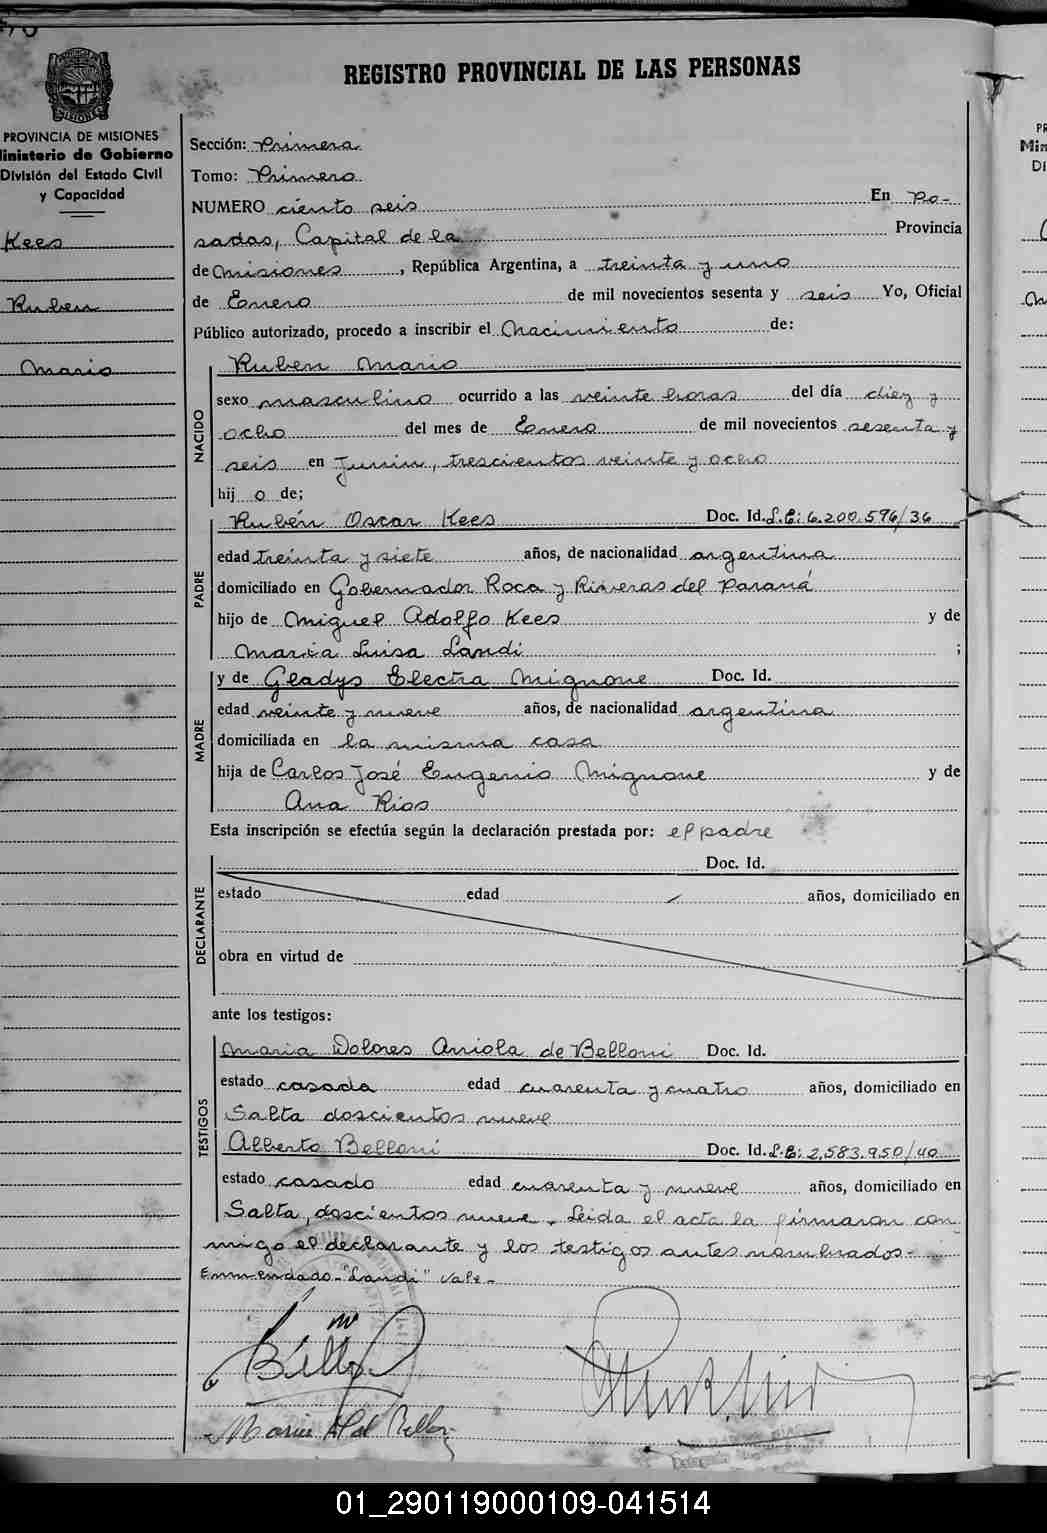 REGISTRO PROVINCIAL DE LAS PERSONAS
PROVINCIA DE MISIONES
Ministerio de Gobierno
División del Estado Civil
y Capacidad
Kees
Ruben
Mario
Sección: Primera
Tomo: Primero
NUMERO ciento seis En Po-
sadas, Capital de la Provincia
de Misiones, República Argentina, a treinta y uno
de Enero de mil novecientos sesenta y seis Yo, Oficial
Público autorizado, procedo a inscribir el Nacimiento de:
NACIDO
Ruben Mario
sexo masculino ocurrido a las veinte horas del día diez y
ocho del mes de Enero de mil novecientos sesenta y
seis en Junin, trescientos veinte y ocho
hij o de;
PADRE
Rubén Oscar Kees Doc. Id. L.E: 6.200.596/36
edad treinta y siete años, de nacionalidad argentina
domiciliado en Gobernador Roca y Riveras del Paraná
hijo de Miguel Adolfo Kees y de
Maria Luisa Landi ;
MADRE
y de Gladys Electra Mignone Doc. Id.
edad veinte y nueve años, de nacionalidad argentina
domiciliada en la misma casa
hija de Carlos José Eugenio Mignone y de
Ana Rios
Esta inscripción se efectúa según la declaración prestada por: el padre
DECLARANTE
Doc. Id.
estado edad años, domiciliado en
obra en virtud de
ante los testigos:
TESTIGOS
Maria Dolores Arriola de Belloni Doc. Id.
estado casada edad cuarenta y cuatro años, domiciliado en
Salta doscientos nueve
Alberto Belloni Doc. Id. L.E: 2,583.950/40
estado casado edad cuarenta y nueve años, domiciliado en
Salta, doscientos nueve. Leida el acta la firmaron con
migo el declarante y los testigos antes nombrados-
Enmendado-"Landi" Vale-
01_290119000109-041514